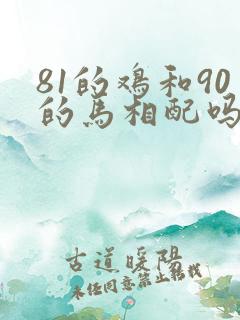 81的鸡和90
的马相配吗
古道暖阳
未经同意禁止转载